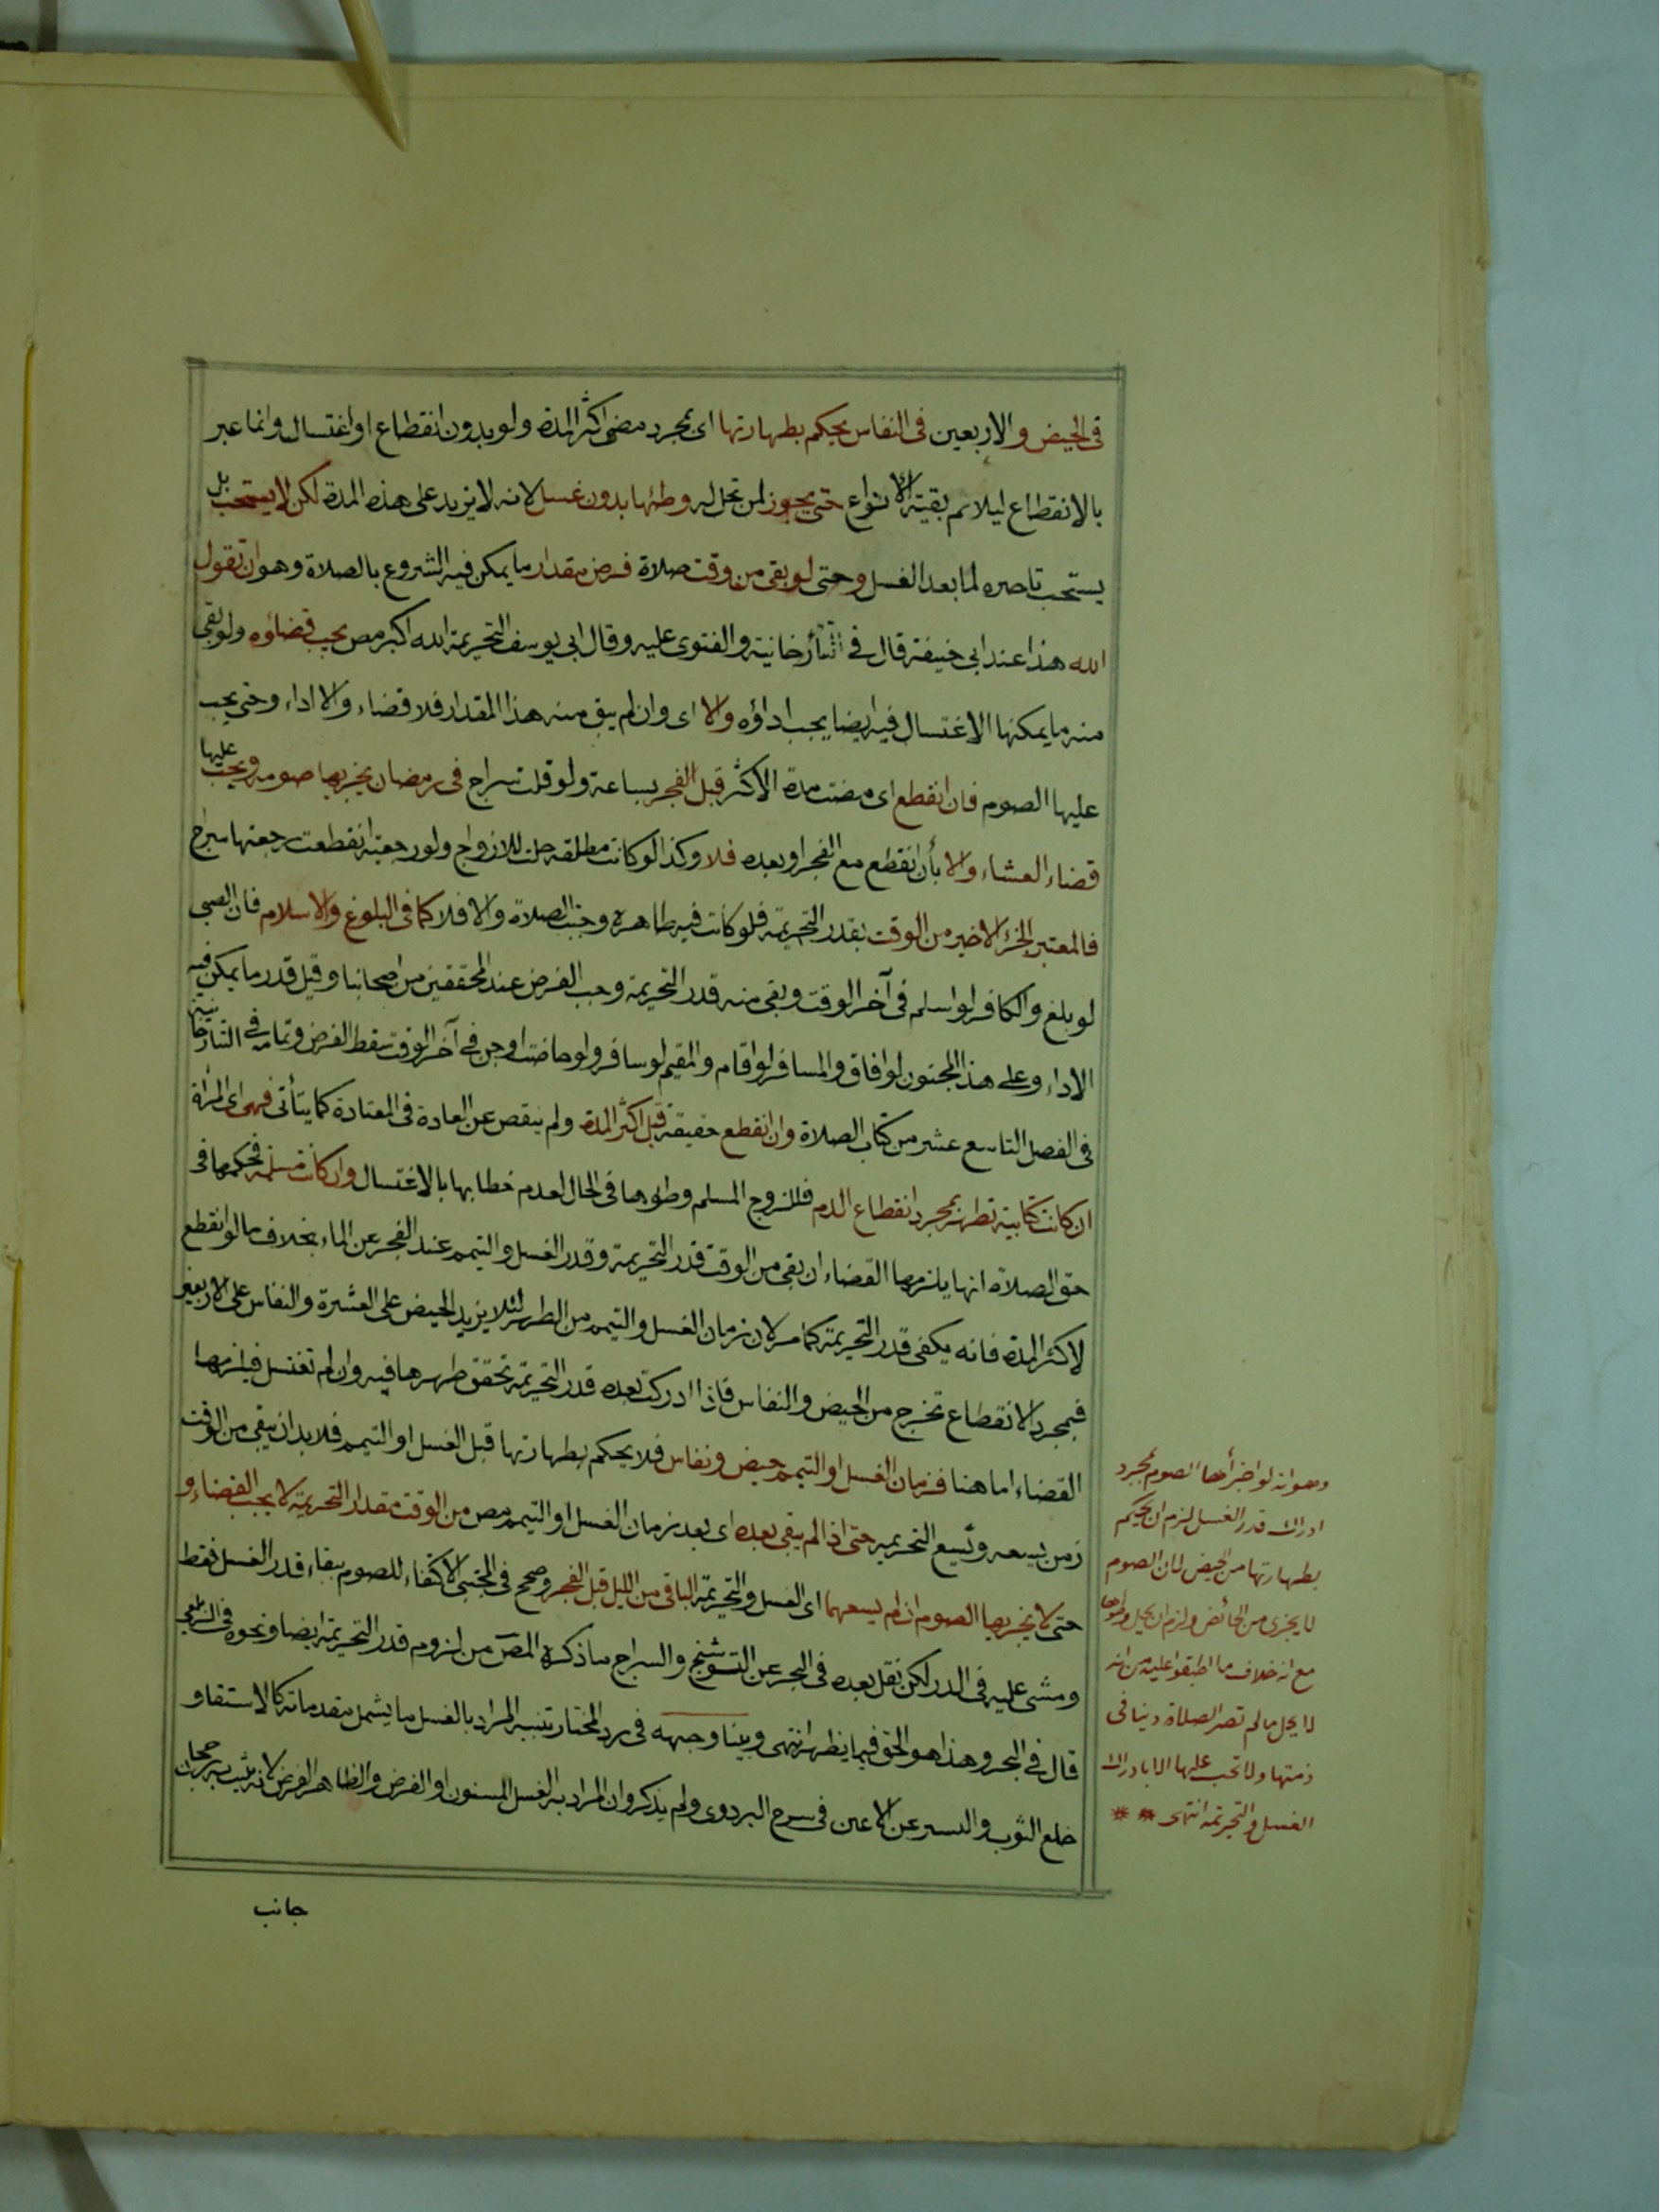 في الحيض والاربعين في النفاس يحكم بطهارتها اى بمجرد مضى اكثر المدة ولو بدون انقطاع او اغتسال وانما عبر
بالانقطاع ليلائم بقية الانواع حتى يجوز لمن تحل له وطئها بدون غسل لانه لا يزيد على هذه المدة لكن لا يستحب بل
يستحب تاخيره لما بعد الغسل وحتى لو بقى من وقت صلاة فرض مقدار ما يمكن فيه الشروع بالصلاة وهو ان تقول
الله هذا عند ابي حنيفة قال في التتارخانية والفتوى عليه وقال ابي يوسف التحريمة الله اكبر مص يجب قضاؤه ولو بقى
منه ما يمكنها الاغتسال فيه ايضا يجب اداؤه والا اى وان لم يبق منه هذا المقدار فلا قضاء والا اداء وحتى يجب
عليها الصوم فان انقطع اى مضت مدة الاكثر قبل الفجر بساعة ولو قلت سراج في رمضان يجزيها صومه ويجب عليها
قضاء العشاء والا بأن انقطع مع الفجر او بعده فلا وكذا لو كانت مطلقه حلت للازواج ولو رجعية انقطعت رجعتها سراج
فالمعتبر الجزء الاخير من الوقت بقدر التحريمة فلو كانت فيه طاهرة وجبت الصلاة والا فلا كما في البلوغ والاسلام فان الصبى
لو بلغ والكافر لو اسلم في آخر الوقت وبقى منه قدر التحريمة وجب الفرض عند المحققين من اصحابنا وقيل قدر ما يمكن فيه
الاداء وعلى هذا المجنون لو افاق والمسافر لو اقام والمقيم لو سافر ولو حاضت او جن في آخر الوقت سقط الفرض وتمامه في التتارخانية
في الفصل التاسع عشر من كتاب الصلاة وان انقطع حقيقة قبل اكثر المدة ولم ينقص عن العادة في المعتادة كما يتأتى فهى اى المرأة
ان كانت كتابية تطهر بمجرد انقطاع الدم فللزوج المسلم وطؤها في الحال لعدم خطابها بالاغتسال وان كانت مسلمة فحكمها في
حق الصلاة انها يلزمها القضاء ان بقى من الوقت قدر التحريمة وقدر الغسل والتيمم عند الفجر عن الماء بخلاف ما لو انقطع
لاكثر المدة فانه يكفى قدر التحريمة كما مر لان زمان الغسل والتيمم من الطهر لئلا يزيد الحيض على العشرة والنفاس على الاربعين
فبمجرد الانقطاع تخرج من الحيض والنفاس فاذا ادركت بعده قدر التحريمة تحقق طهرها فيه وان لم تغتسل فيلزمها
القضاء اما هنا فزمان الغسل او التيمم حيض ونفاس فلا يحكم بطهارتها قبل الغسل او التيمم فلا بد ان يبقى من الوقت
زمن يسعه ويسع التحريمه حتى اذا لم يبقى بعده اى بعد زمان الغسل او التيمم مص من الوقت مقدار التحريمة لا يجب القضاء و
حتى لا يجزيها الصوم ان لم يسعهما اى الغسل والتحريمة الباقى من الليل قبل الفجر وصحح في المجتبى الاكتفاء للصوم ببقاء قدر الغسل فقط
ومشى عليه في الدر لكن نقل بعده في البحر عن التوشيح والسراج ما ذكره المص من لزوم قدر التحريمة ايضا ونحوه في الزيلعى
قال في البحر وهذا هو الحق فيما يظهر انتهى وبينا وجهه في رد المختار تنبيه المراد بالغسل ما يشمل مقدماته كالاستقاو
خلع الثوب والتستر عن الاعين في شرح البزدوى ولم يذكر وان المراد به الغسل المسنون او الفرض والظاهر الفرض لانه يثبت به رجحان
جانب
وهو انه لو اجزأها الصوم بمجرد
ادراك قدر الغسل لزم ان يحكم
بطهارتها من الحيض لان الصوم
لا يجزى من الحائض ولزم ان يحل وطؤها
مع انه خلاف ما اطبقوا عليه من انه
لا يحل ما لم تصر الصلاة دينا في
ذمتها ولا تجب عليها الا بادراك
الغسل والتحريمة انتهى